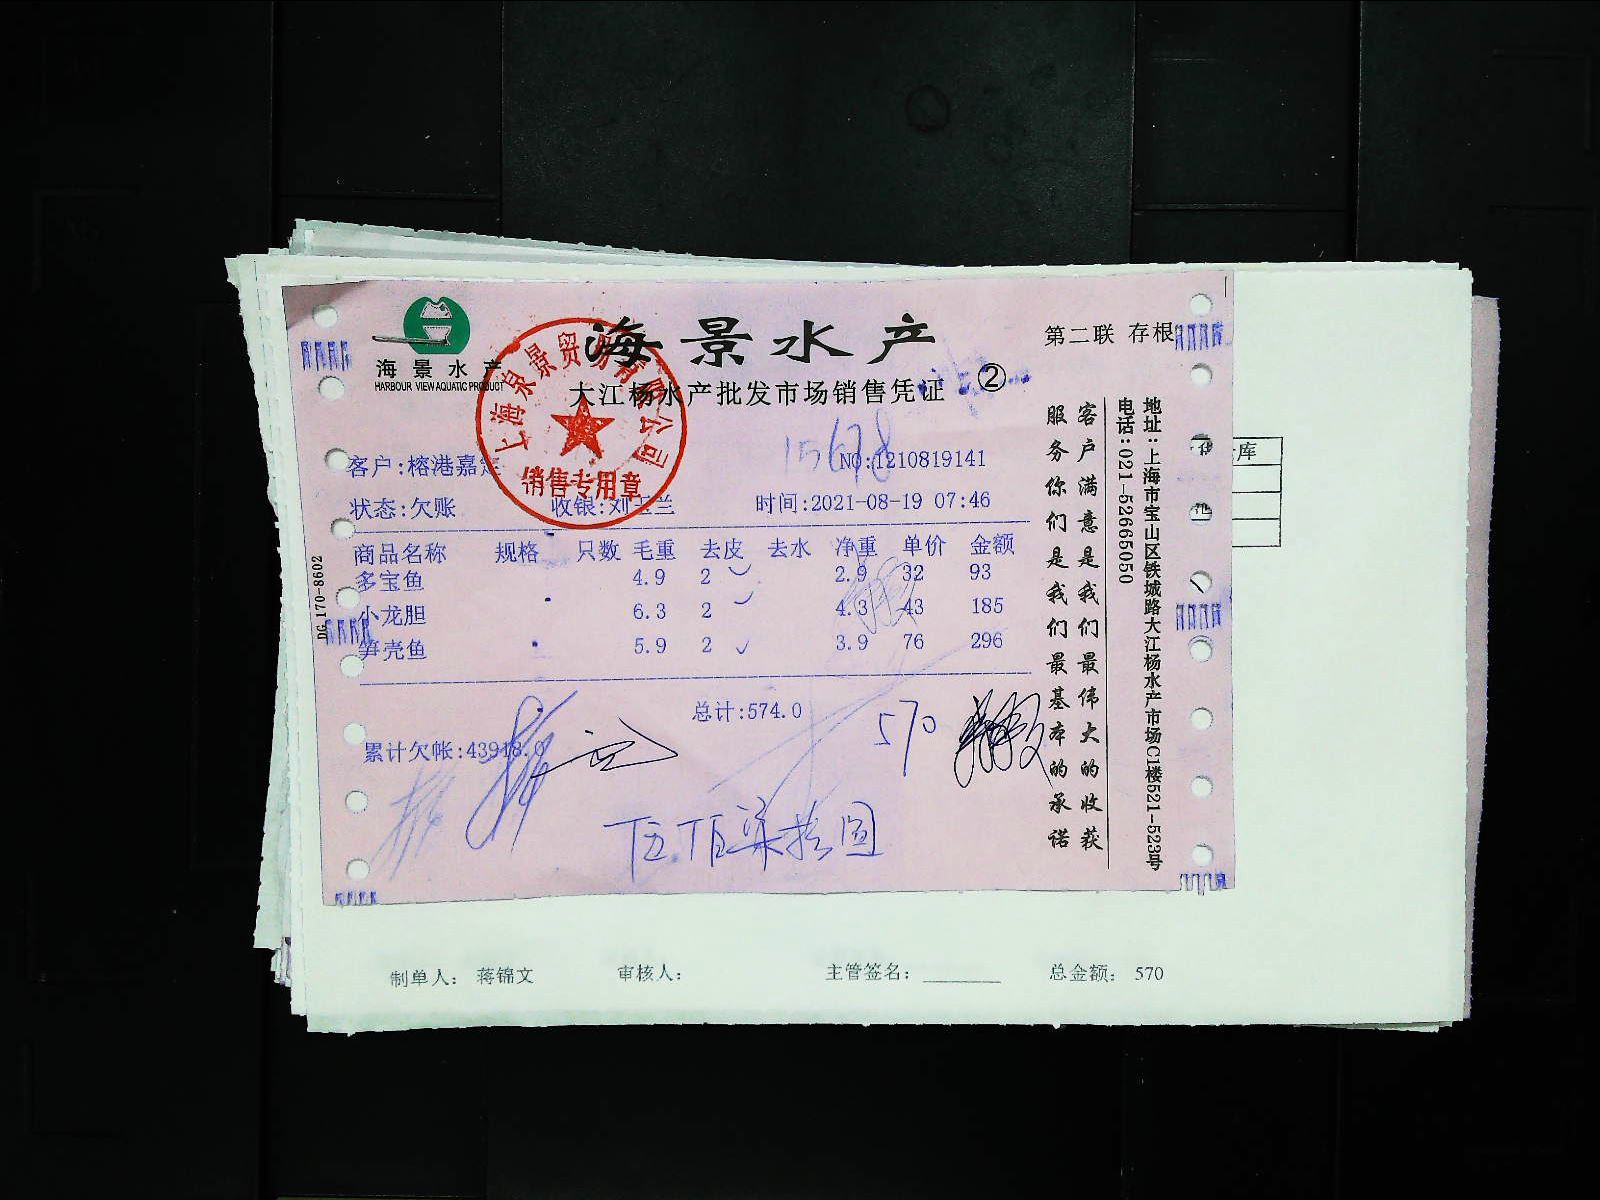 海景水产
HARBOUR VIEW AQUATIC PRODUCT
海景水产
第二联 存根
大江杨水产批发市场销售凭证 ②
上海泉景贸易有限公司
销售专用章
15678
客户:榕港嘉定
NO:1210819141
状态:欠账 收银:刘玉兰 时间:2021-08-19 07:46
商品名称 规格 只数 毛重 去皮 去水 净重 单价 金额
多宝鱼 4.9 2 2.9 32 93
小龙胆 6.3 2 4.3 43 185
笋壳鱼 5.9 2 3.9 76 296
总计:574.0
570
累计欠帐:43918.0
伍佰柒拾圆
客户满意是我们最伟大的收获
服务你们是我们最基本的承诺
地址:上海市宝山区铁城路大江杨水产市场C1楼521-523号
电话:021-52665050
DG 170-8602
库
制单人: 蒋锦文 审核人: 主管签名: 总金额: 570